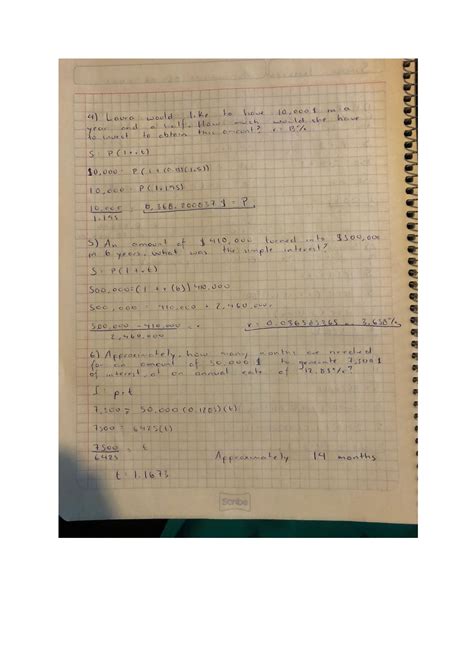 4) Laura would like to have 10,000$ in a
year and a half. How much would she have
to invest to obtain this amount? r = 13%
S = P(1+it)
10,000 = P(1+(0.13)(1.5))
10,000 = P(1.195)
10,000
1.195
= 8,368.200837 $ = P
5) An amount of $410,000 turned into $500,000
in 6 years, what was the simple interest?
S = P(1+it)
500,000 = (1+r(6))410,000
500,000 = 410,000 + 2,460,000
500,000 - 410,000 = r
2,460,000
r = 0.036585365 = 3.658%
6) Approximately, how many months are needed
for an amount of 50,000$ to generate 7,500$
of interest at an annual rate of 12.85%?
I = pit
7,500 = 50,000(0.1285)(t)
7500 = 6425(t)
7500 = t
6425
Approximately 14 months
t = 1.1673
Scribe